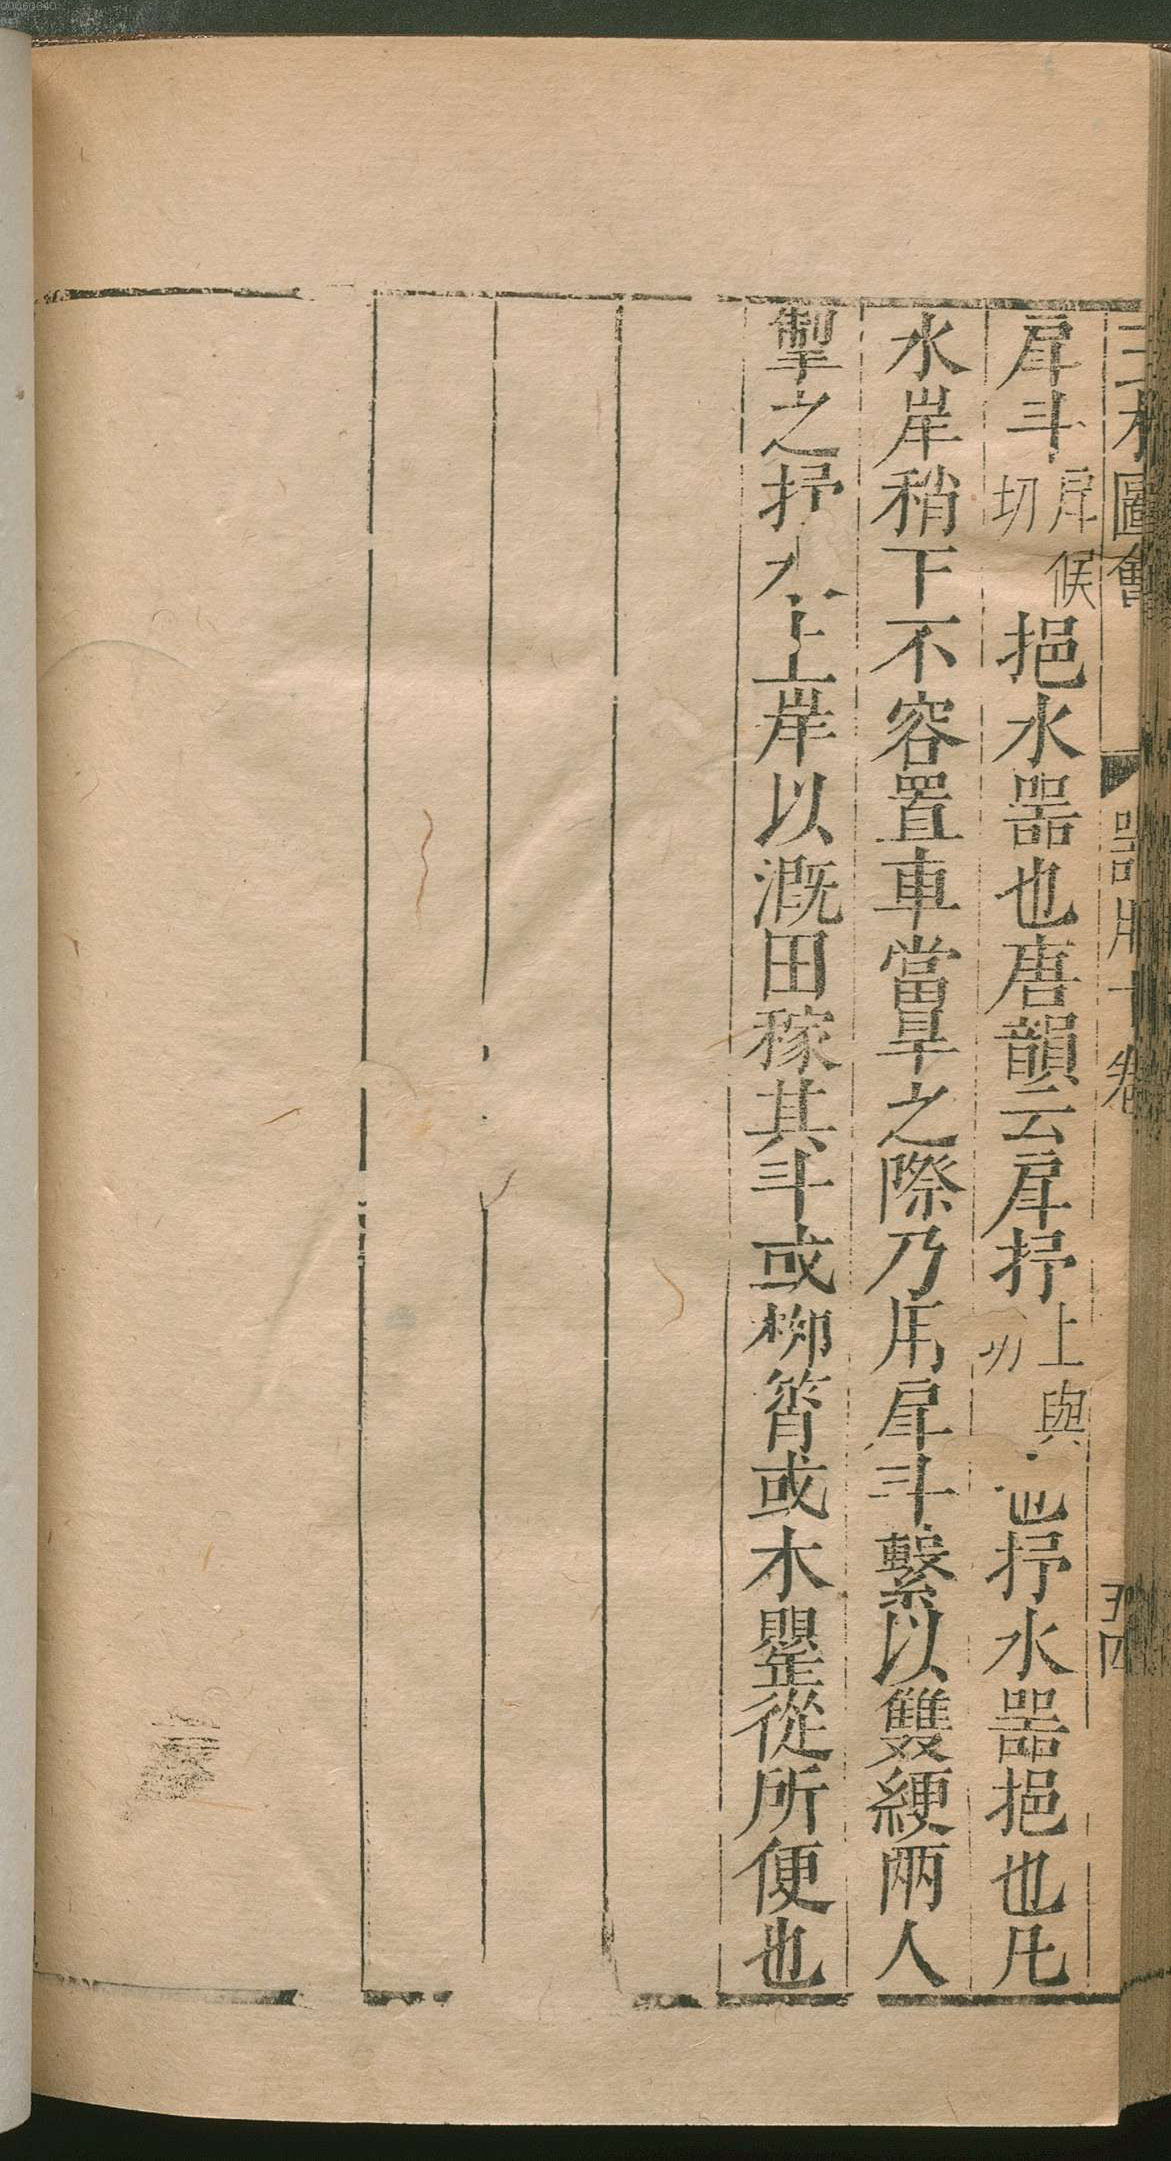 三才圖會 器用十卷 五四
戽斗戽候切挹水噐也唐韻云戽抒上與切也抒水噐挹也凡
水岸稍下不容置車當旱之際乃用戽斗繫以雙綆兩人
掣之抒水上岸以溉田稼其斗或柳筲或木罌從所便也